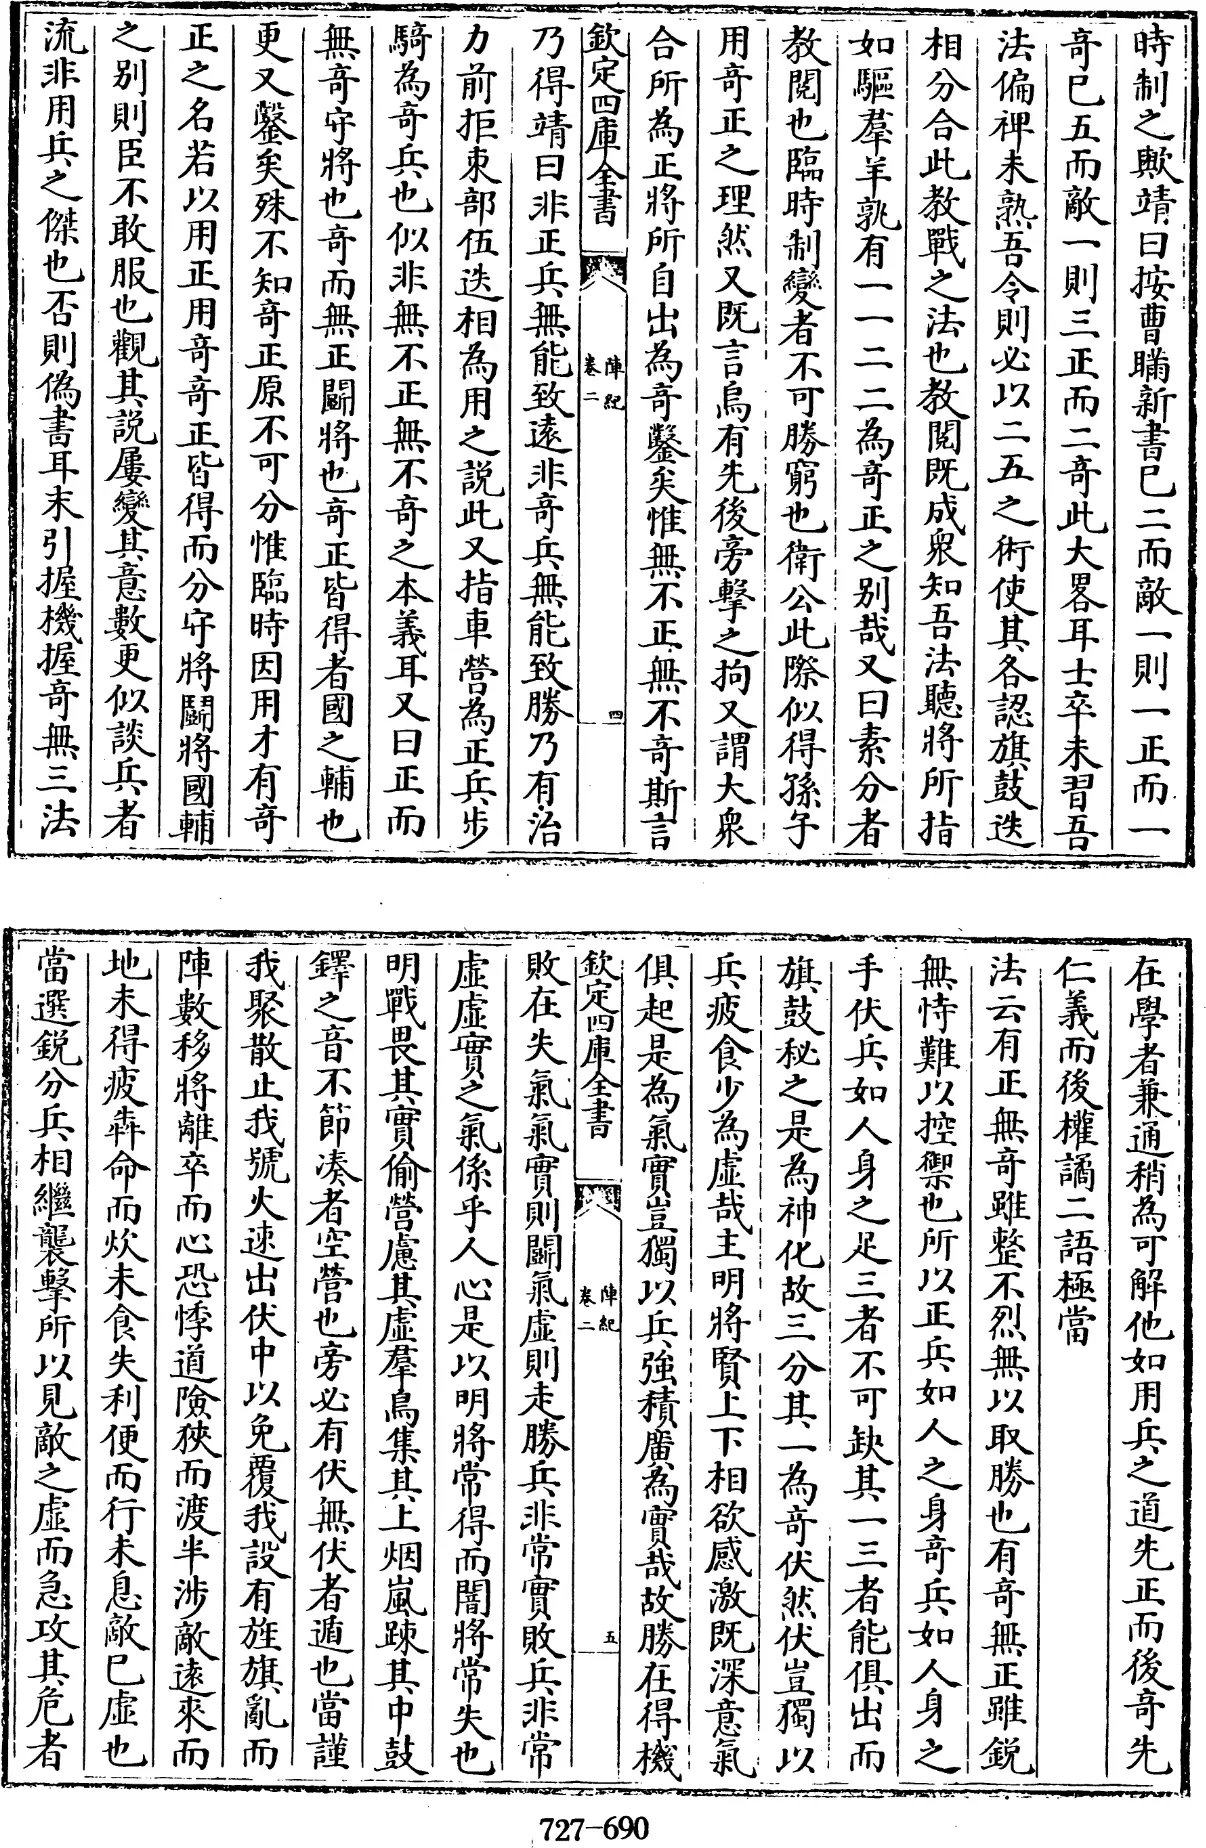 時制之歟靖曰按曹瞞新書已二而敵一則一正而一
奇已五而敵一則三正而二奇此大畧耳士卒未習吾
法偏裨未熟吾令則必以二五之術使其各認旗鼓迭
相分合此教戰之法也教閱既成衆知吾法聽將所指
如驅羣羊孰有一一二二為奇正之别哉又曰素分者
教閱也臨時制變者不可勝窮也衛公此際似得孫子
用奇正之理然又既言烏有先後旁擊之拘又謂大衆
合所為正將所自出為奇鑿矣惟無不正無不奇斯言
欽定四庫全書
陣紀
卷二
四
乃得靖曰非正兵無能致遠非奇兵無能致勝乃有治
力前拒束部伍迭相為用之説此又指車營為正兵步
騎為奇兵也似非無不正無不奇之本義耳又曰正而
無奇守將也奇而無正鬬將也奇正皆得者國之輔也
更又鑿矣殊不知奇正原不可分惟臨時因用才有奇
正之名若以用正用奇奇正皆得而分守將鬬將國輔
之别則臣不敢服也觀其説屢變其意數更似談兵者
流非用兵之傑也否則偽書耳末引握機握奇無三法
在學者兼通稍為可解他如用兵之道先正而後奇先
仁義而後權譎二語極當
法云有正無奇雖整不烈無以取勝也有奇無正雖鋭
無恃難以控禦也所以正兵如人之身奇兵如人身之
手伏兵如人身之足三者不可缺其一三者能俱出而
旗鼓秘之是為神化故三分其一為奇伏然伏豈獨以
兵疲食少為虚哉主明將賢上下相欲感激既深意氣
俱起是為氣實豈獨以兵強積廣為實哉故勝在得機
欽定四庫全書
陣紀
卷二
五
敗在失氣氣實則鬬氣虚則走勝兵非常實敗兵非常
虚虚實之氣係乎人心是以明將常得而闇將常失也
明戰畏其實偷營慮其虚羣烏集其上烟嵐踈其中鼓
鐸之音不節凑者空營也旁必有伏無伏者遁也當謹
我聚散止我號火速出伏中以免覆我設有旌旗亂而
陣數移將離卒而心恐悸道險狹而渡半涉敵遠來而
地未得疲犇命而炊未食失利便而行未息敵已虚也
當選鋭分兵相繼襲擊所以見敵之虚而急攻其危者
727-690